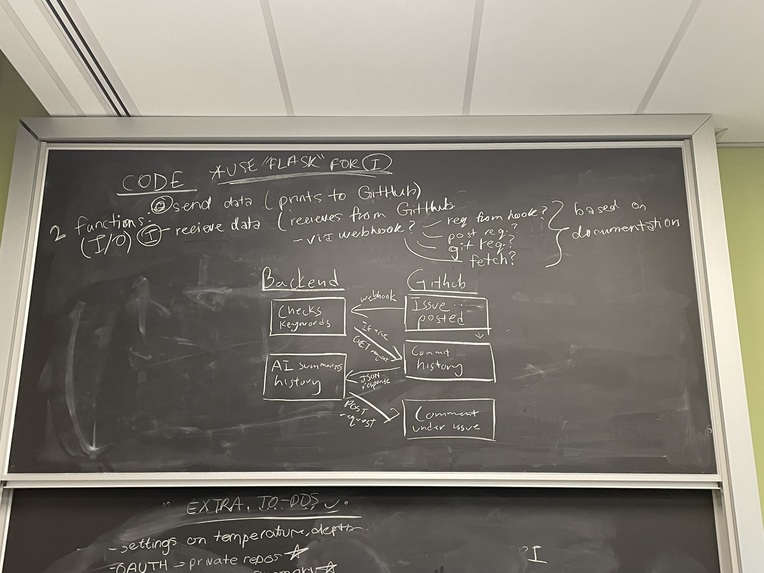 CODE *USE "FLASK" FOR I
O send data (prints to GitHub)
2 functions:
(I/O) I - recieve data (recieves from GitHub
- via webhook? - req from hook?
- post req.?
- git req.?
- fetch?
based on
documentation
Backend
Github
Checks
Keywords
webhook
Issue
posted
If
GET
Commit
history
AI
history
JSON
response
POST
request
Comment
under issue
EXTRA TO-DOS
- settings on temperature,
- OAUTH → private repos ☆
I